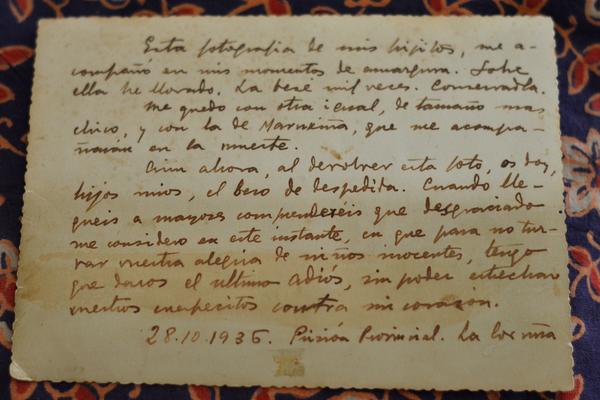 Esta fotografia de mis hijitos, me a-
compañó en mis momentos de amargura. Sobre
ella he llorado. La besé mil veces. Conservadla.
Me quedo con otra igual, de tamaño mas
chico, y con la de Maruxiña, que me acompa-
ñarán en la muerte.
Aun ahora, al devolver esta foto, os doy,
hijos mios, el beso de despedida. Cuando lle-
gueis a mayores comprenderéis que desgraciado
me considero en este instante, en que para no tur-
var vuestra alegria de niños inocentes, tengo
que daros el ultimo adiós, sin poder estrechar
vuestros cuerpecitos contra mi corazón.
28.10.1936. Prisión Provincial. La Coruña